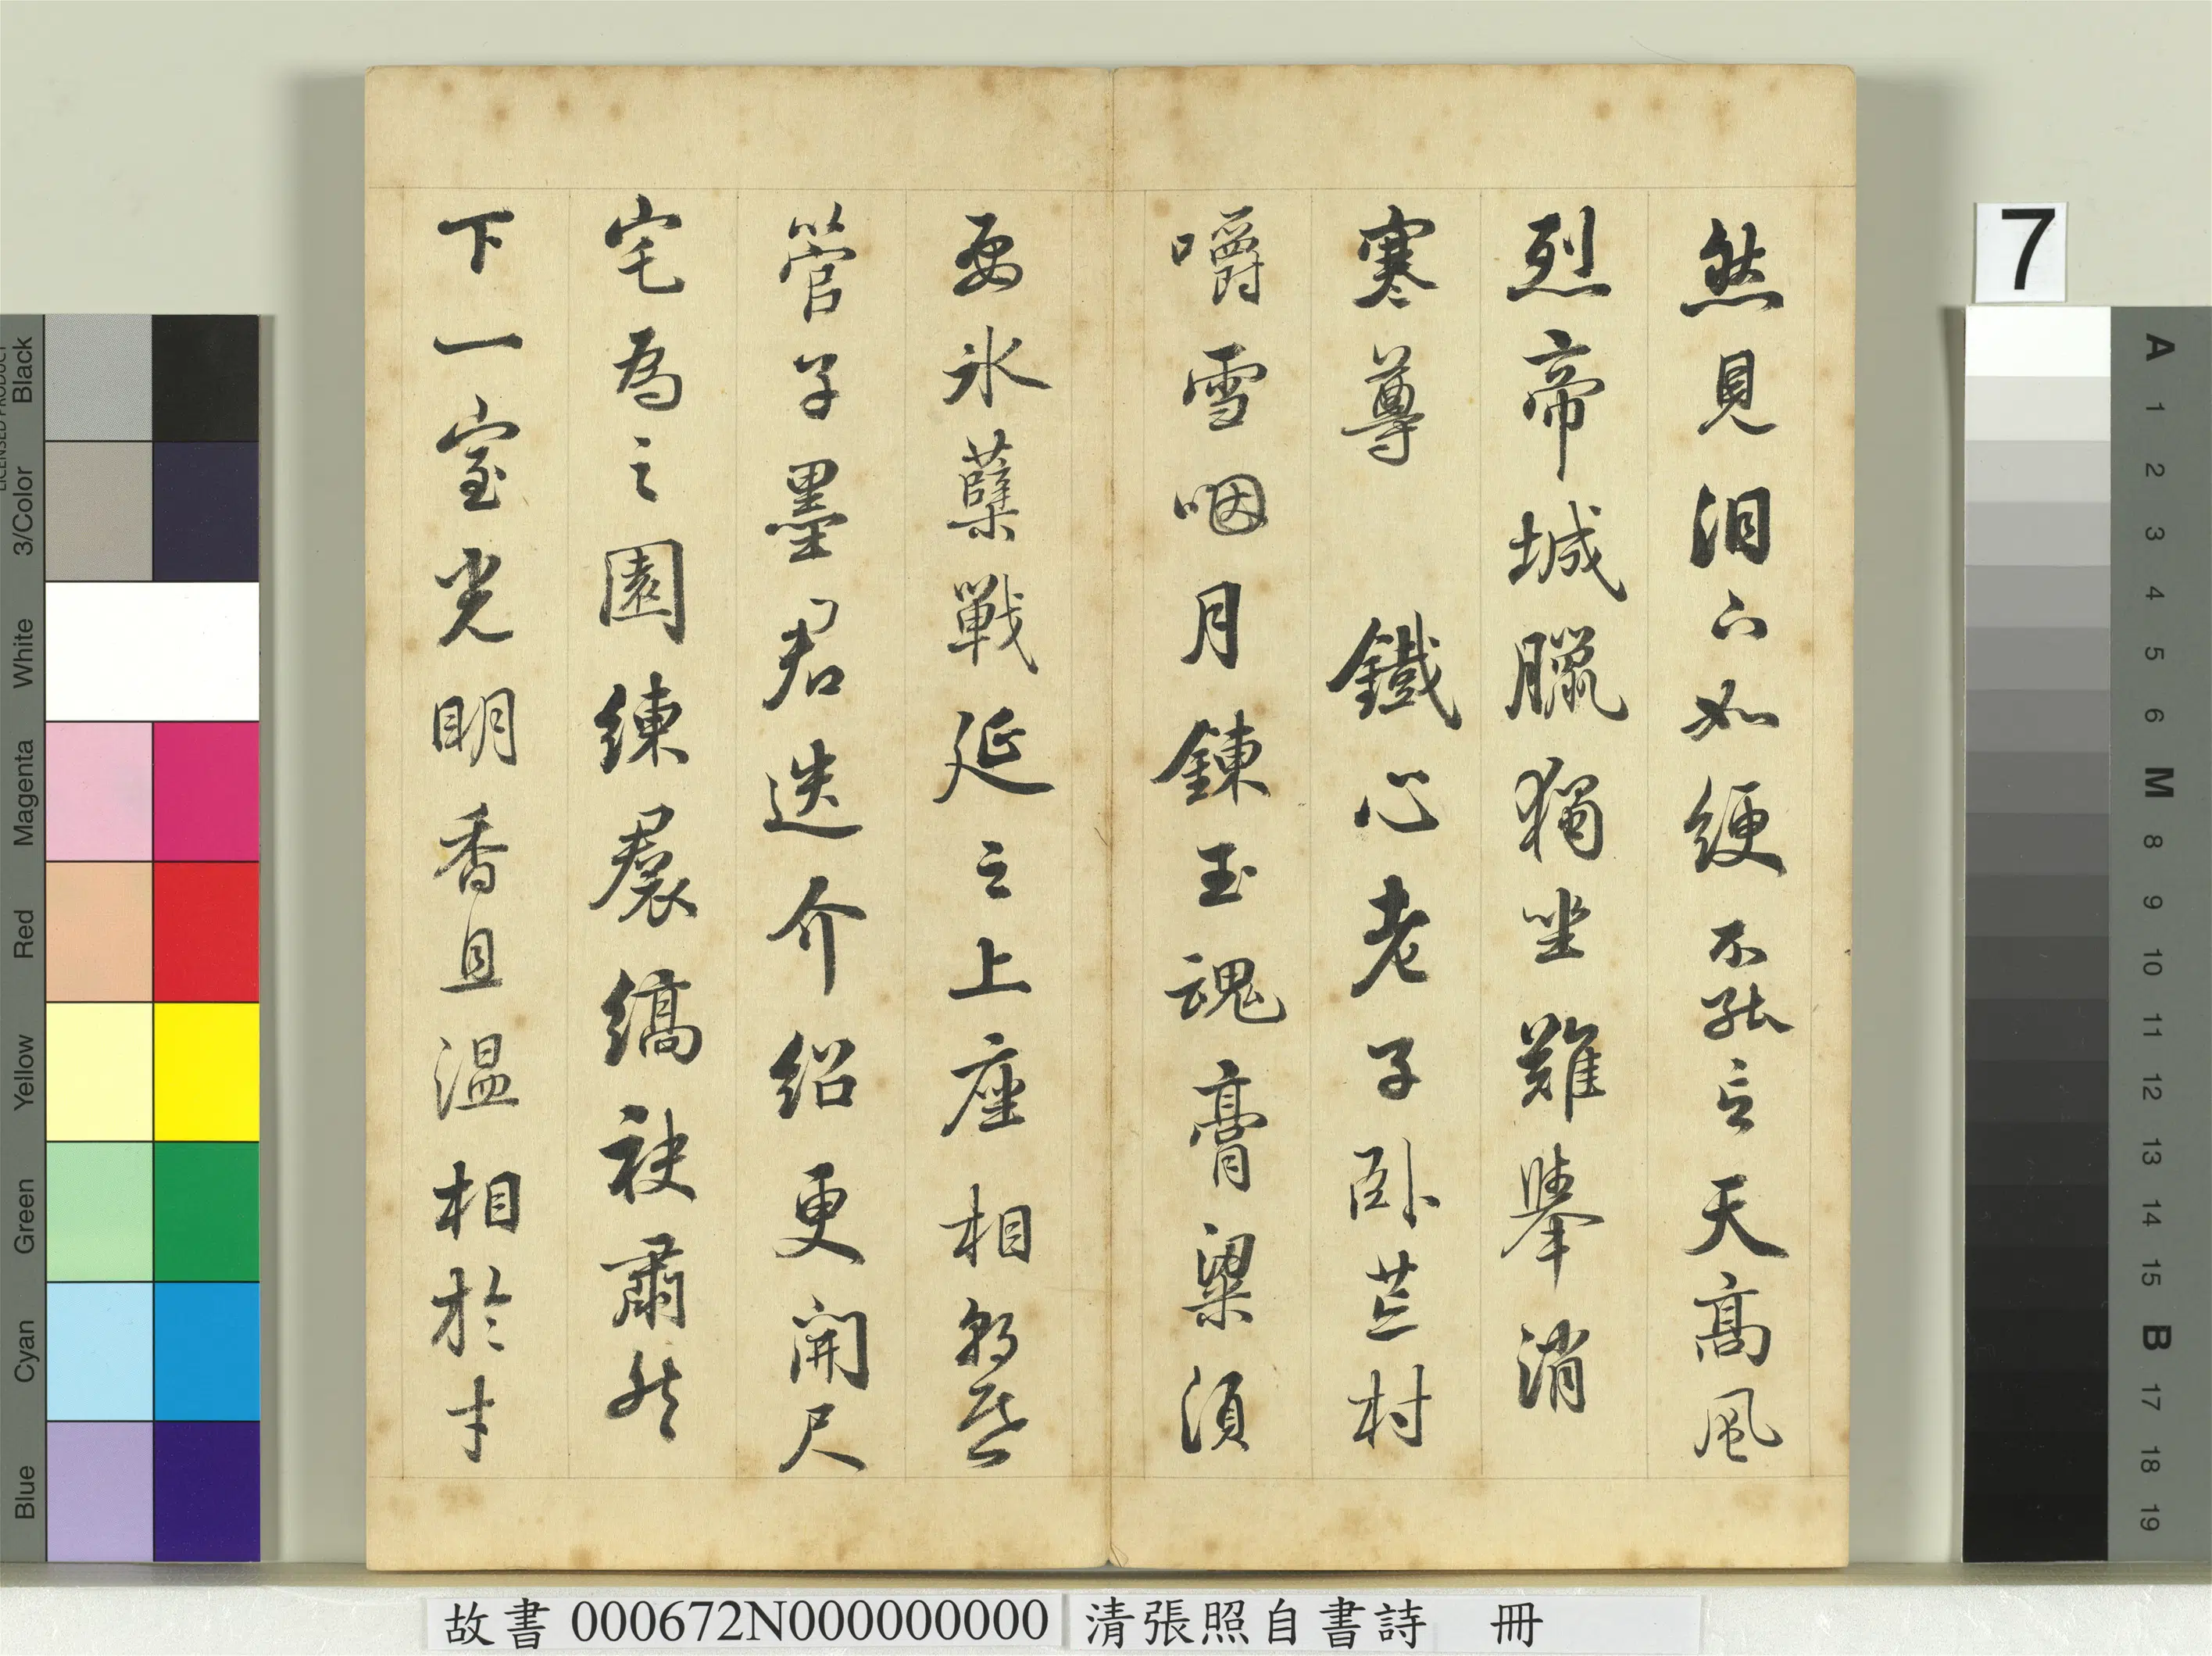 然見泪下如綆不能言天高風
烈帝城臘獨坐難舉消
寒尊　鐵心老子臥芒村
嚼雪咽月鍊玉魂膏粱須
要氷蘗戰延之上座相朝昏
管子墨君迭介紹更開尺
宅為之園練裠縞袂肅然
下一室光明香且温相於才
7
Black
3/Color
White
Magenta
Red
Yellow
Green
Cyan
Blue
A
1
2
3
4
5
6
M
8
9
10
11
12
13
14
15
B
17
18
19
故書 000672N000000000
清張照自書詩　冊